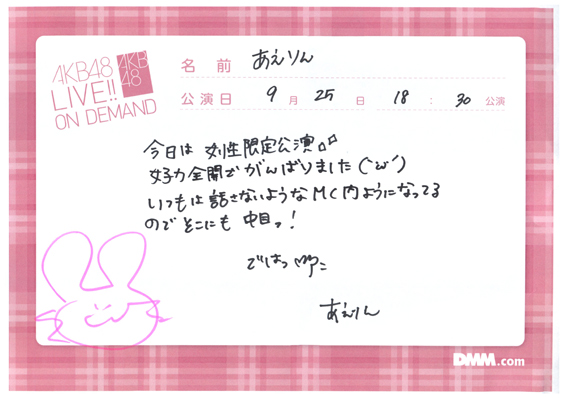 AKB48
LIVE!!
ON DEMAND
AKB
48
名 前 あえりん
公演日 9 月 25 日 18 : 30 公演
今日は 女性限定公演♪
女子力全開でがんばりました(´ω`)
いつもは話さないようなMC内ようになってる
のでそこにも 中目っ!
ではっ
あえりん
DMM.com